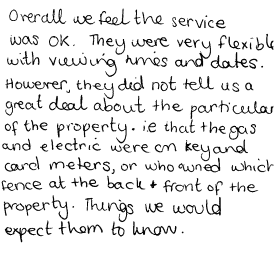 Overall we feel the service
was OK. They were very flexible
with viewing times and dates.
However, they did not tell us a
great deal about the particular
of the property. i.e that the gas
and electric were on key and
card meters, or who owned which
fence at the back + front of the
property. Things we would
expect them to know.